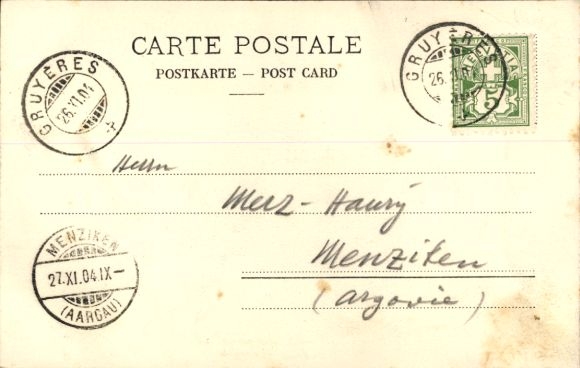 CARTE POSTALE
POSTKARTE — POST CARD
GRUYÈRES
26.XI.04
GRUYÈRES
26.XI.04
5
Herrn
Merz-Haury
Menziken
(Argovie)
MENZIKEN
27.XI.04.IX-
(AARGAU)